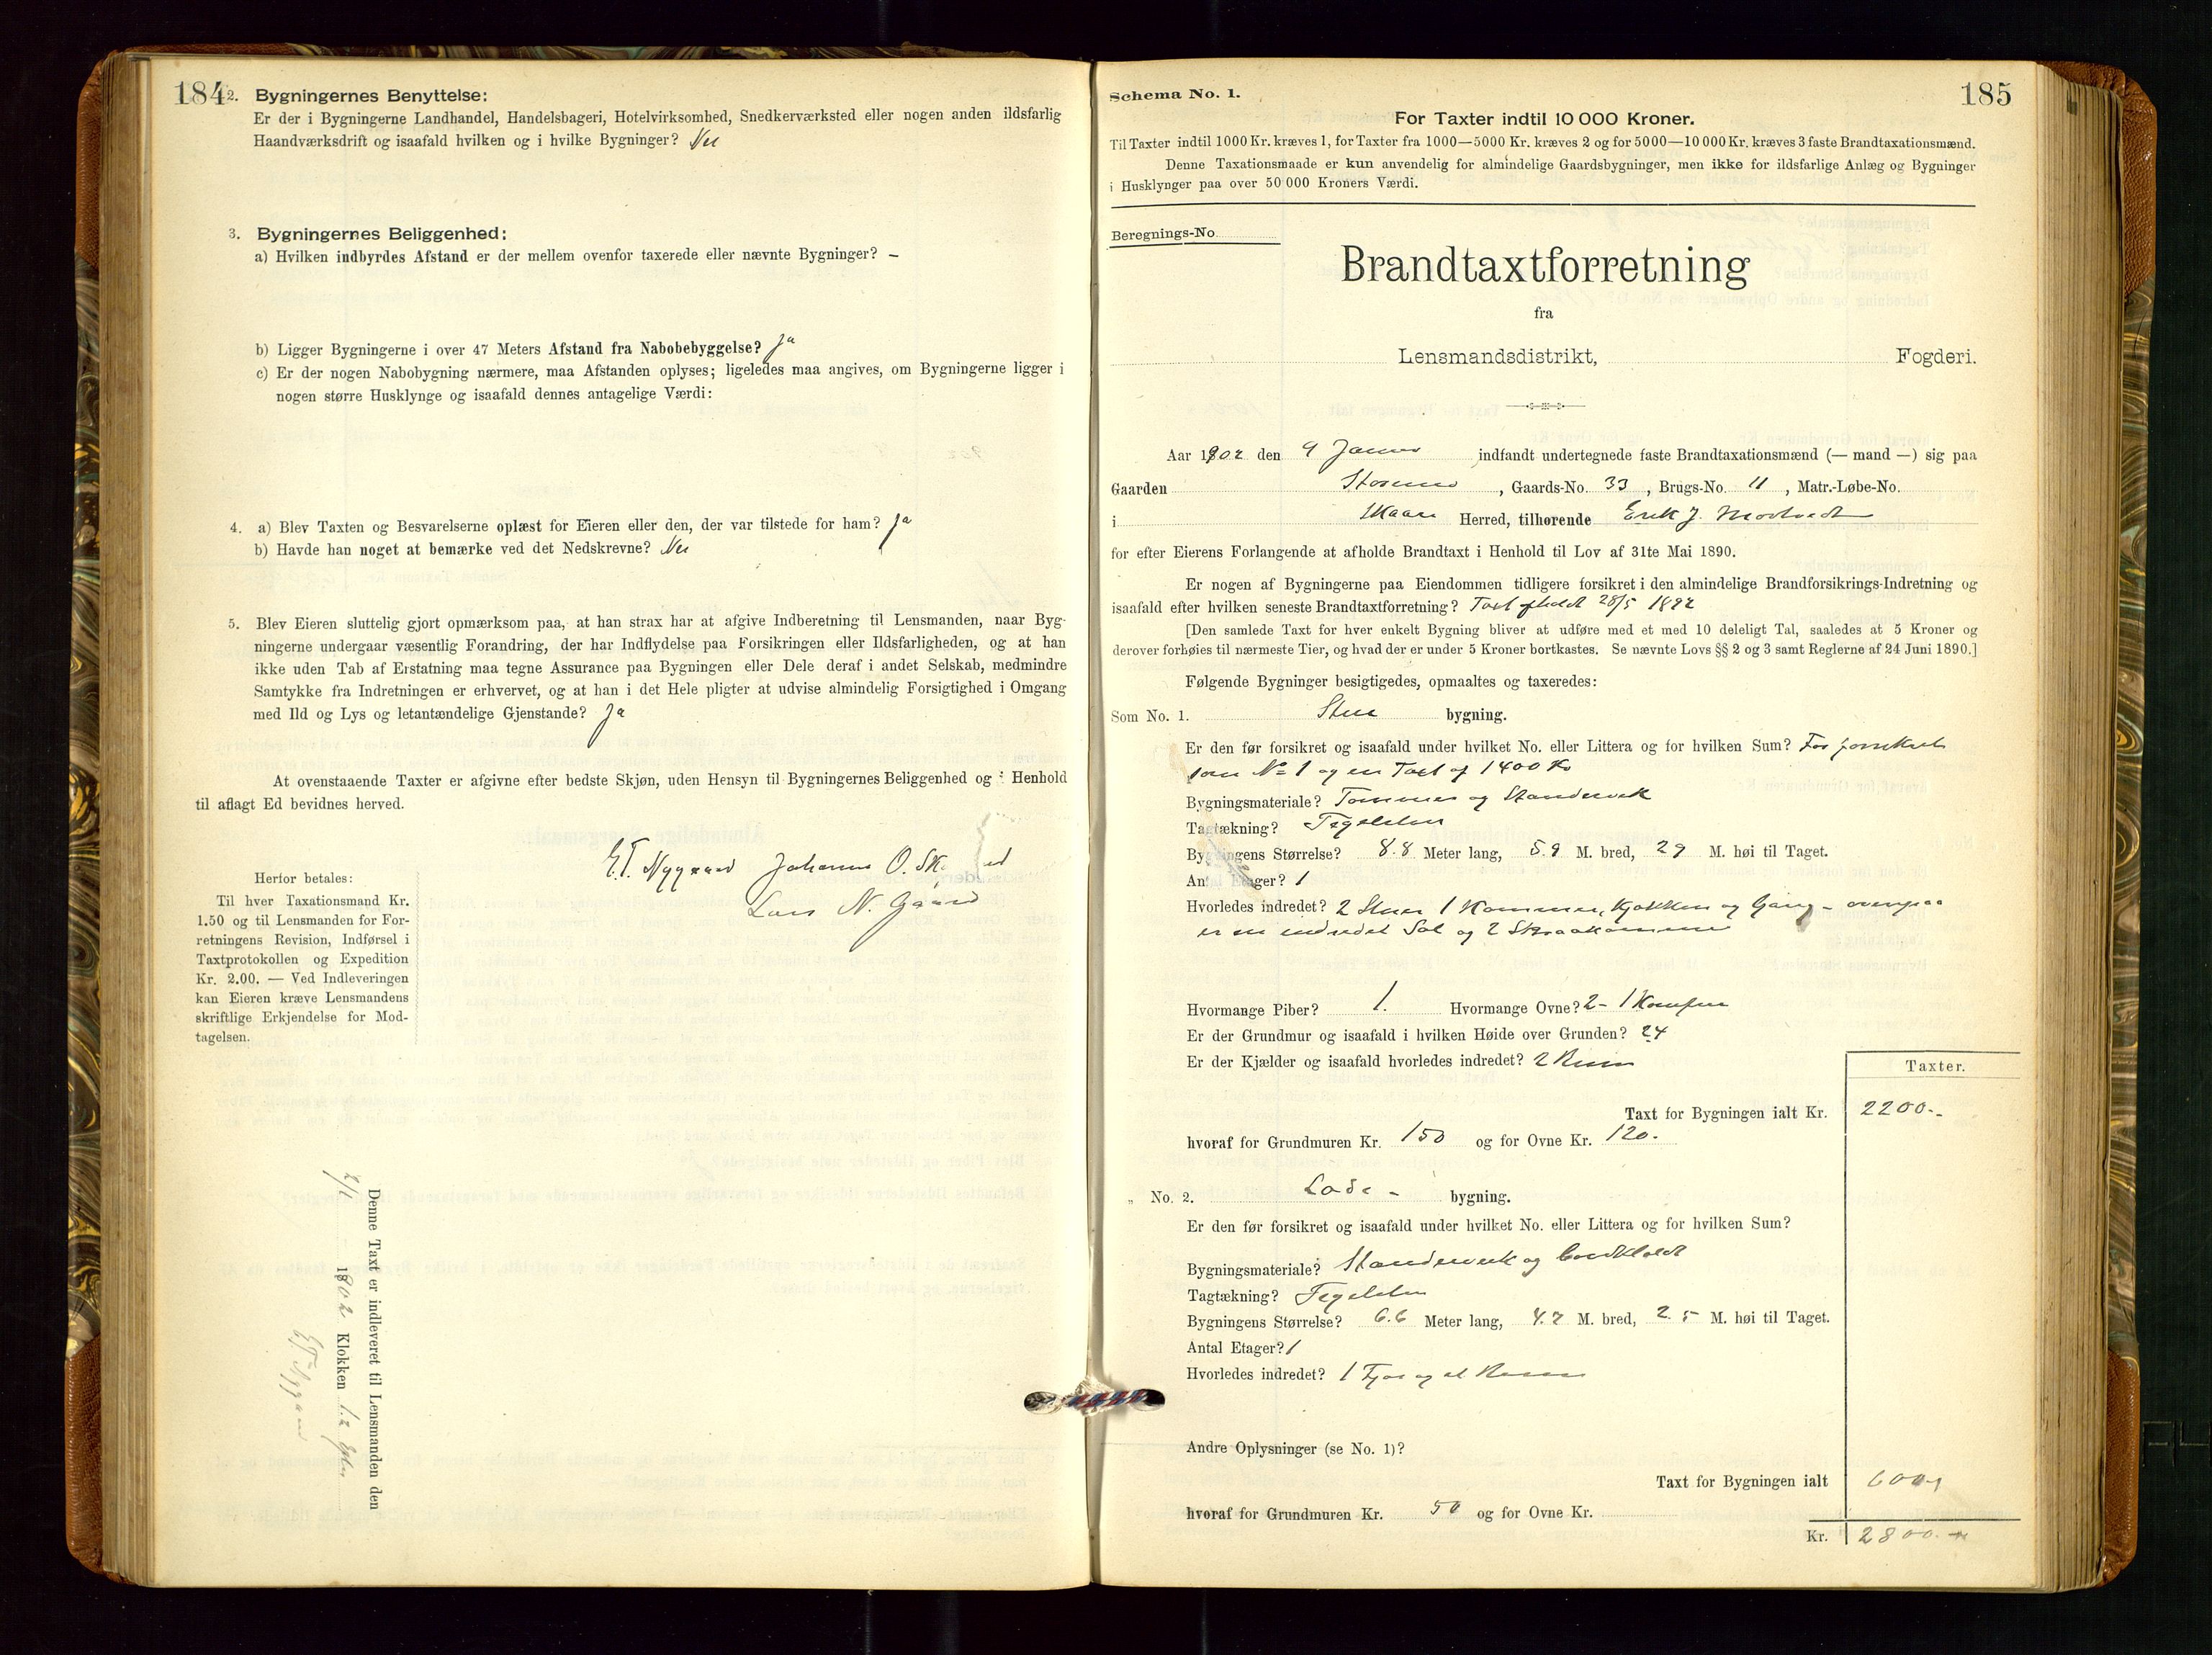 184
2. Bygningernes Benyttelse:
Er der i Bygningerne Landhandel, Handelsbageri, Hotelvirksomhed, Snedkerværksted eller nogen anden ildsfarlig
Haandværksdrift og isaafald hvilken og i hvilke Bygninger? Nei
3. Bygningernes Beliggenhed:
a) Hvilken indbyrdes Afstand er der mellem ovenfor taxerede eller nævnte Bygninger? –
b) Ligger Bygningerne i over 47 Meters Afstand fra Nabobebyggelse? Ja
c) Er der nogen Nabobygning nærmere, maa Afstanden oplyses; ligeledes maa angives, om Bygningerne ligger i
nogen større Husklynge og isaafald dennes antagelige Værdi:
4. a) Blev Taxten og Besvarelserne oplæst for Eieren eller den, der var tilstede for ham? Ja
b) Havde han noget at bemærke ved det Nedskrevne? Nei
5. Blev Eieren sluttelig gjort opmærksom paa, at han strax har at afgive Indberetning til Lensmanden, naar Byg-
ningerne undergaar væsentlig Forandring, der har Indflydelse paa Forsikringen eller Ildsfarligheden, og at han
ikke uden Tab af Erstatning maa tegne Assurance paa Bygningen eller Dele deraf i andet Selskab, medmindre
Samtykke fra Indretningen er erhvervet, og at han i det Hele pligter at udvise almindelig Forsigtighed i Omgang
med Ild og Lys og letantændelige Gjenstande? Ja
At ovenstaaende Taxter er afgivne efter bedste Skjøn, uden Hensyn til Bygningernes Beliggenhed og i Henhold
til aflagt Ed bevidnes herved.
E.T. Nygaard Johannes O.
Lars N. Gjard
Herfor betales:
Til hver Taxationsmand Kr.
1.50 og til Lensmanden for For-
retningens Revision, Indførsel i
Taxtprotokollen og Expedition
Kr. 2.00. — Ved Indleveringen
kan Eieren kræve Lensmandens
skriftlige Erkjendelse for Mod-
tagelsen.
Denne Taxt er indleveret til Lensmanden den
1902 Klokken 12
185
Schema No. 1.
For Taxter indtil 10 000 Kroner.
Til Taxter indtil 1000 Kr. kræves 1, for Taxter fra 1000—5000 Kr. kræves 2 og for 5000—10 000 Kr. kræves 3 faste Brandtaxationsmænd.
Denne Taxationsmaade er kun anvendelig for almindelige Gaardsbygninger, men ikke for ildsfarlige Anlæg og Bygninger
i Husklynger paa over 50 000 Kroners Værdi.
Beregnings-No.
Brandtaxtforretning
fra
Lensmandsdistrikt, Fogderi.
Aar 1902 den 9 Januar indfandt undertegnede faste Brandtaxationsmænd (— mand —) sig paa
Gaarden , Gaards-No. 33, Brugs-No. 11, Matr.-Løbe-No.
i Skaare Herred, tilhørende Erik J.
for efter Eierens Forlangende at afholde Brandtaxt i Henhold til Lov af 31te Mai 1890.
Er nogen af Bygningerne paa Eiendommen tidligere forsikret i den almindelige Brandforsikrings-Indretning og
isaafald efter hvilken seneste Brandtaxtforretning? Taxt afholdt 28/5 1892
[Den samlede Taxt for hver enkelt Bygning bliver at udføre med et med 10 deleligt Tal, saaledes at 5 Kroner og
derover forhøies til nærmeste Tier, og hvad der er under 5 Kroner bortkastes. Se nævnte Lovs §§ 2 og 3 samt Reglerne af 24 Juni 1890.]
Følgende Bygninger besigtigedes, opmaaltes og taxeredes:
Som No. 1. Stue bygning.
Er den før forsikret og isaafald under hvilket No. eller Littera og for hvilken Sum? Før forsikret
som No 1 og en Taxt af 1400 Kr
Bygningsmateriale? Tømmer og Standerverk
Tagtækning? Teglsten
Bygningens Størrelse? 8.8 Meter lang, 5.9 M. bred, 2 9 M. høi til Taget.
Antal Etager? 1
Hvorledes indredet? 2 Stuer 1 Kammer, Kjøkken og Gang - ovenpaa
er en indredet Sal og 2 Skraakammer
Hvormange Piber? 1. Hvormange Ovne? 2 - 1 Komfur
Er der Grundmur og isaafald i hvilken Høide over Grunden? 24
Er der Kjælder og isaafald hvorledes indredet? 2 Rum
Taxter.
Taxt for Bygningen ialt Kr. 2200.-
hvoraf for Grundmuren Kr. 150 og for Ovne Kr. 120.-
„ No. 2. Lade - bygning.
Er den før forsikret og isaafald under hvilket No. eller Littera og for hvilken Sum?
Bygningsmateriale? Standerverk og bordklædt
Tagtækning? Teglsten
Bygningens Størrelse? 6.6 Meter lang, 4.7 M. bred, 2.5 M. høi til Taget.
Antal Etager? 1
Hvorledes indredet? 1 Fjøs og et Rum
Andre Oplysninger (se No. 1)?
Taxt for Bygningen ialt 600,-
hvoraf for Grundmuren Kr. 50 og for Ovne Kr.
Kr. 2800.-